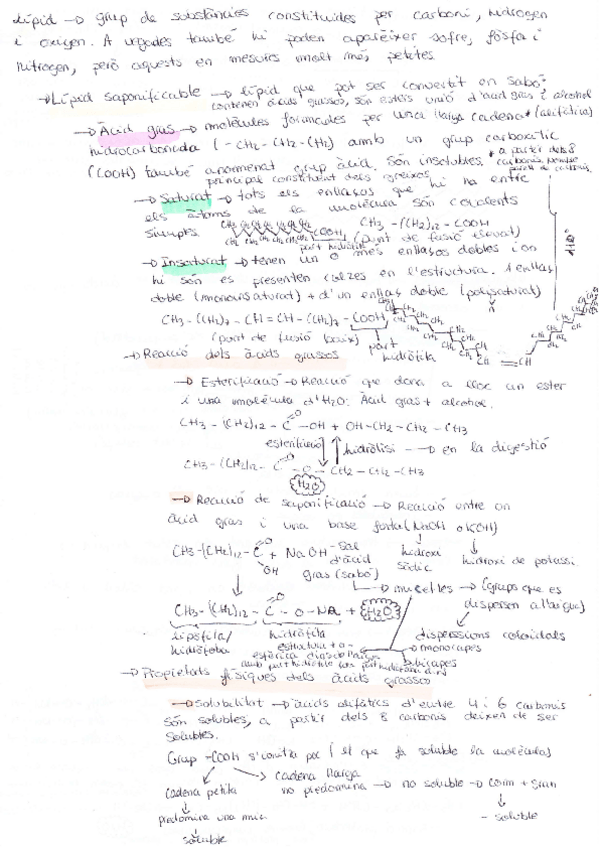 Lípid → grup de substàncies constituides per carboni, hidrogen
i oxigen. A vegades també hi poden aparèixer sofre, fòsfor i
nitrogen, però aquests en mesures molt més petites.
→ Lípid saponificable → lípid que pot ser convertit en sabó.
contenen àcids grassos, són èsters unió d'àcid gras i alcohol
→ Àcid gras → molècules formades per una llarga cadena* (alifàtica)
hidrocarbonada (-CH2-CH2-CH2) amb un grup carboxílic
* a partir dels 8
(COOH) també anomenat grup àcid. Són insolubles.
principal constituent dels greixos
→ Saturat → tots els enllaços que hi ha entre
els àtoms de la molècula són covalents
simples
COOH
CH3-(CH2)12-COOH
(punt de fusió elevat)
part hidròfila
→ Insaturat → tenen un o més enllaços dobles i on
hi són es presenten colzes en l'estructura. 1 enllaç
doble (monoinsaturat) + d'un enllaç doble (polinsaturat)
CH3-(CH2)7-CH=CH-(CH2)7-COOH
(punt de fusió baix)
part
hidròfila
→ Reacció dels àcids grassos
→ Esterificació → Reacció que dona a lloc un ester
i una molècula d'H2O: Àcid gras + alcohol.
CH3-(CH2)12-C-OH + OH-CH2-CH2-CH3
esterificació hidròlisi → en la digestió
CH3-(CH2)12-C-O-CH2-CH2-CH3
H2O
→ Reacció de saponificació → Reacció entre un
àcid gras i una base forta (NaOH o KOH)
CH3-(CH2)12-C + NaOH
OH
Sal
d'àcid
gras (sabó)
hidròxi
sòdic
hidròxi de potassi
→ micel·les → (grups que es
dispersen a l'aigua)
CH3-(CH2)12-C-O-Na + H2O
lipòfila/
hidròfoba
hidròfila
dispersions coloïdals
→ monocapes
→ bicapes
→ Propietats físiques dels àcids grassos
→ Solubilitat → àcids alifàtics d'entre 4 i 6 carbonis
són solubles, a partir dels 8 carbonis deixen de ser
solubles.
Grup -COOH s'ionitza per (el que fa soluble la molècula)
cadena petita
cadena llarga
no predomina → no soluble → com + gran
predomina una mica
- soluble
soluble